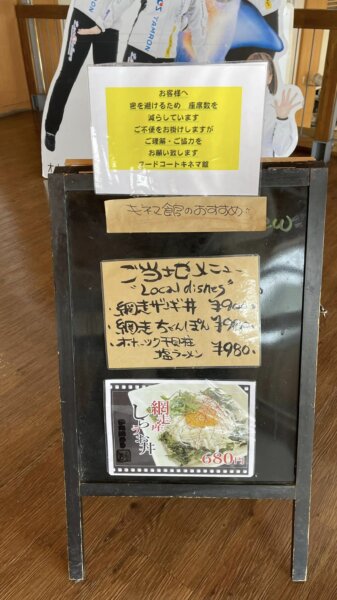 TAMRON
お客様へ
密を避けるため　座席数を
減らしています
ご不便をお掛けしますが
ご理解・ご協力を
お願い致します
フードコートキネマ館
キネマ館のおすすめ
ご当地メニュー
"Local dishes"
網走ザンギ丼 ¥900.
網走ちゃんぽん ¥900.
オホーツク干貝柱
塩ラーメン ¥980.
網走産
しらす丼
680円